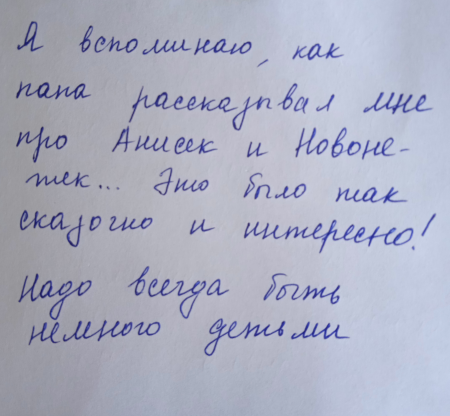 Я вспоминаю, как
папа рассказывал мне
про Анисек и Новоне-
жек... Это было так
сказочно и интересно!
Надо всегда быть
немного детьми